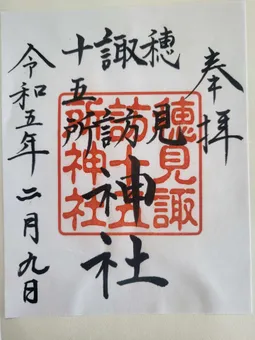 奉拝
穂見
諏訪
十五所
神社
令和五年二月九日
穗見諏
訪十五
所神社